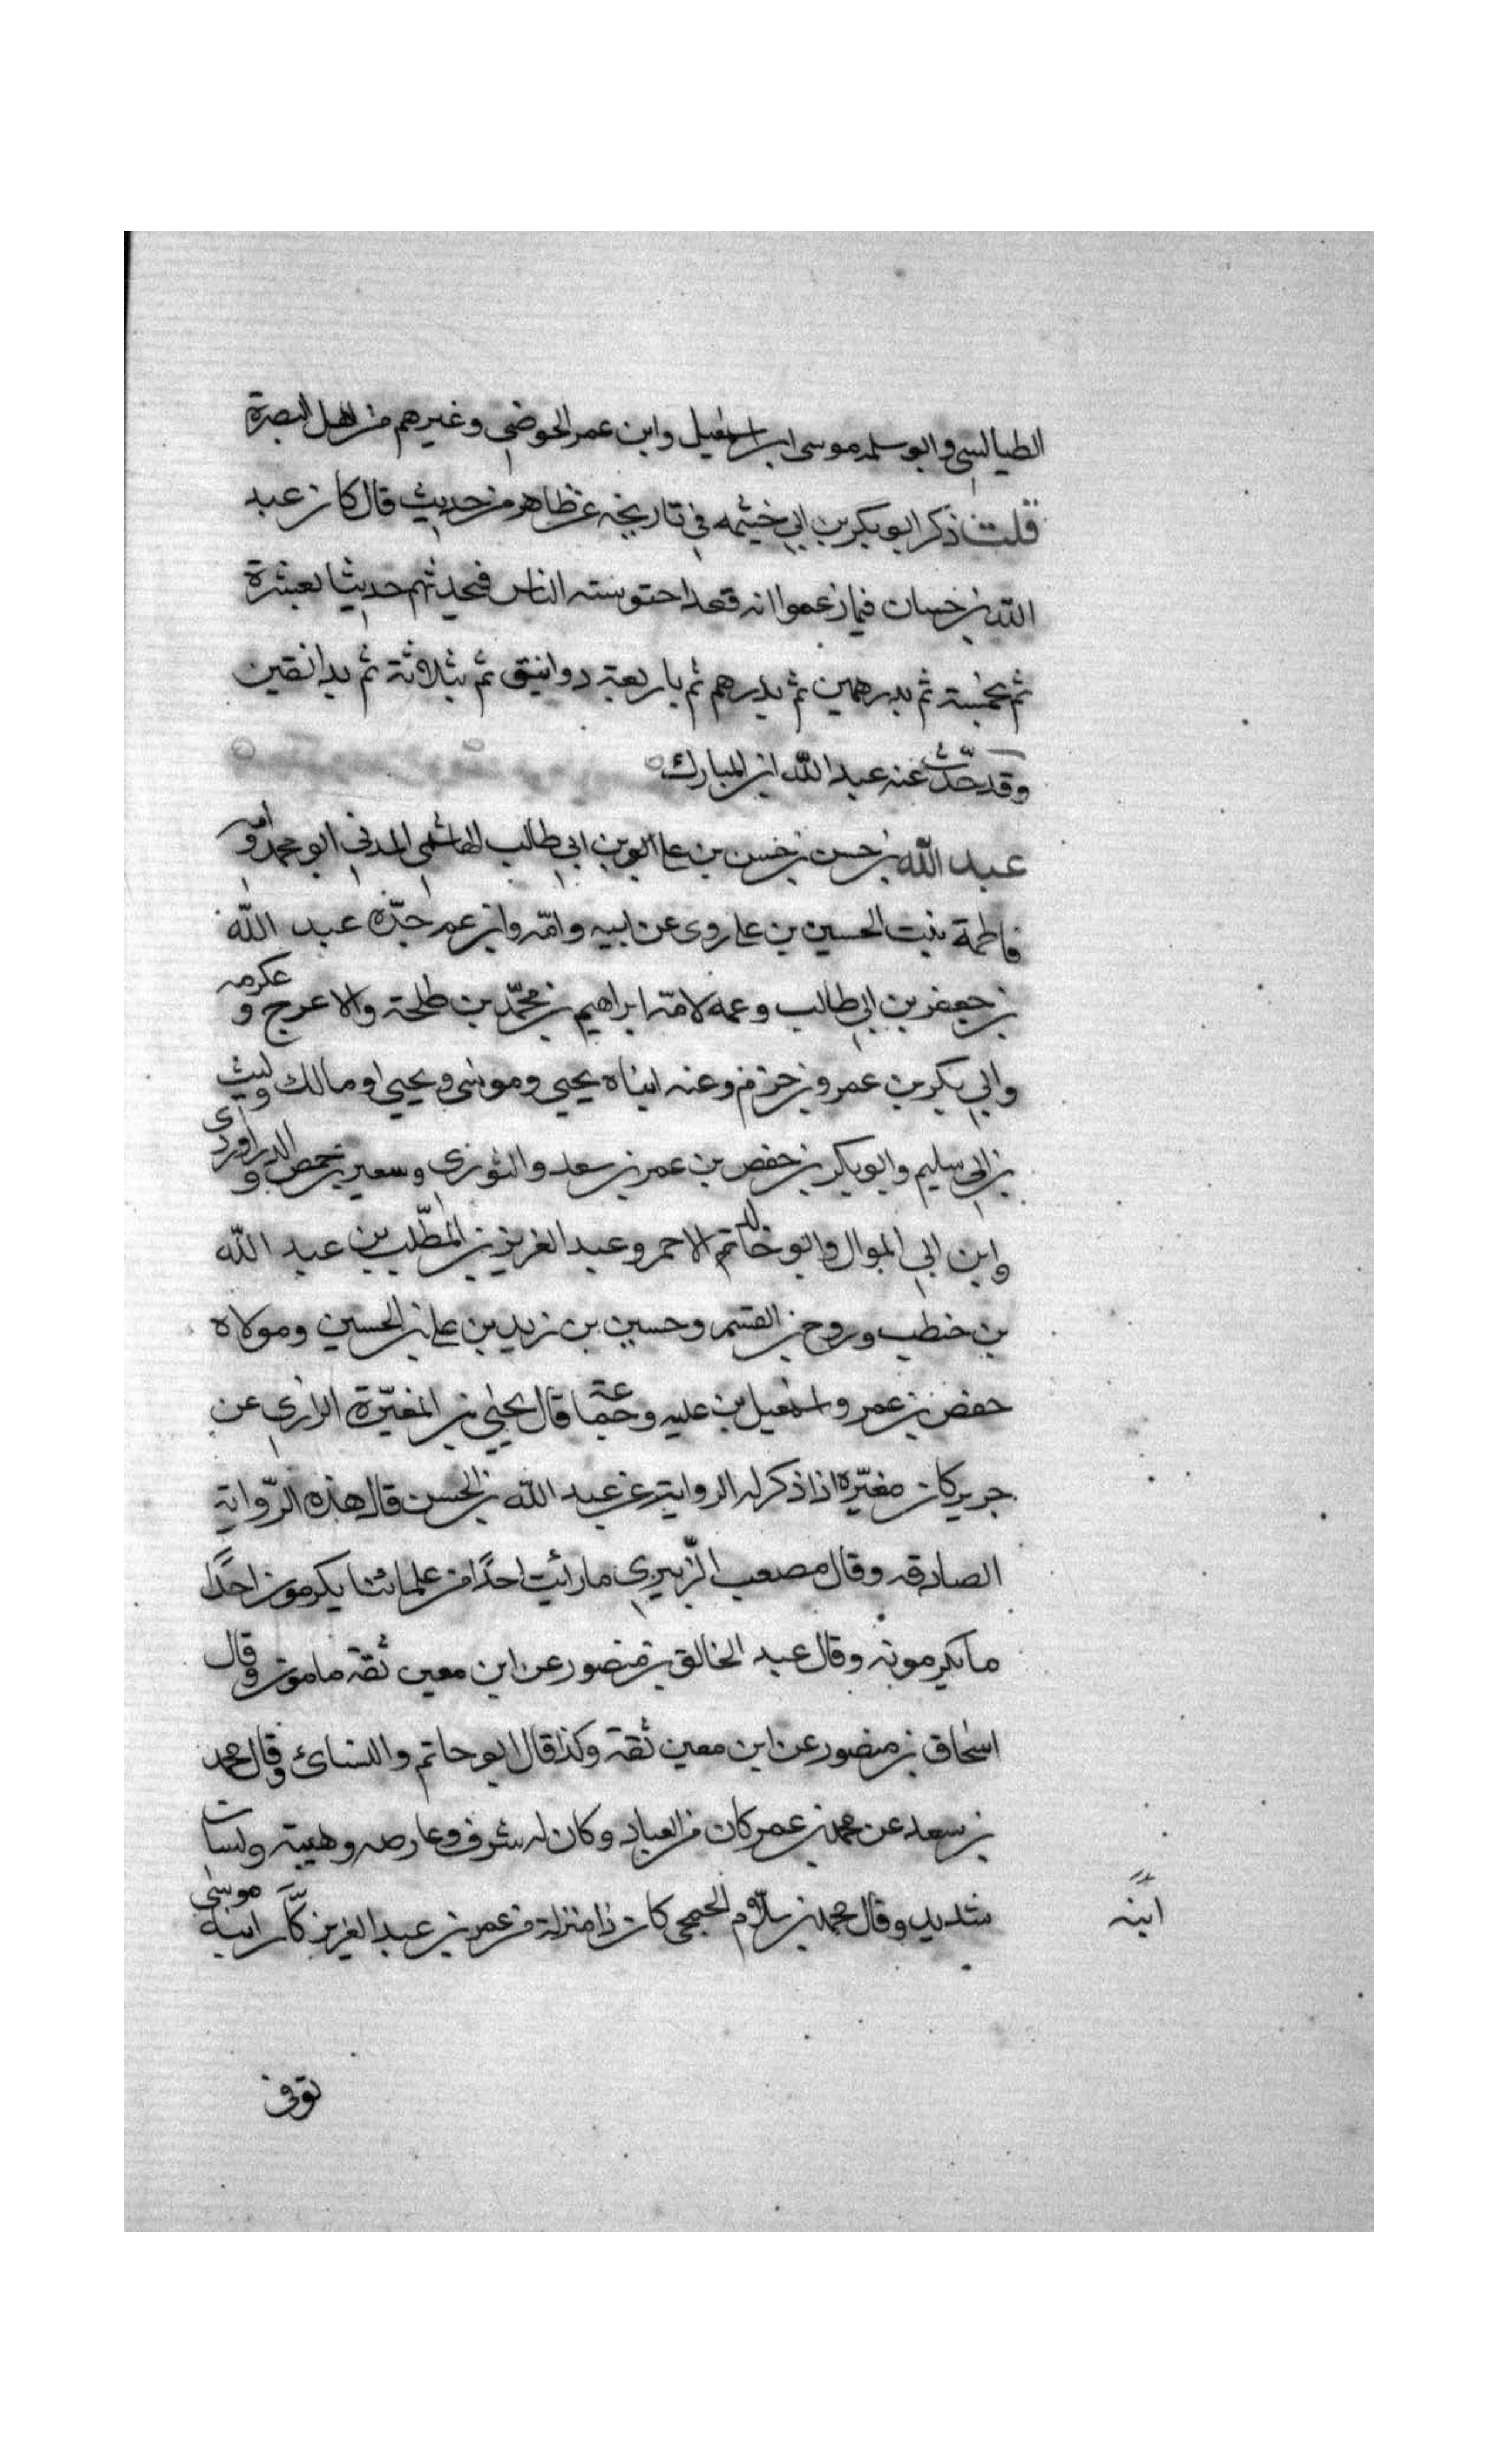 الطيالسي وابو سلمه موسى ابن اسمعيل وابن عمر الحوضي وغيرهم من اهل البصرة
قلت ذكر ابو بكر بن ابي خيثمه في تاريخه عن ظاهر من حديث قال كان عبد
الله بن حسان فيما زعموا انه قعد احتوسته الناس فيحدثهم حديثا بعشرة
ثم بخمسة ثم بدرهمين ثم بدرهم ثم باربعة دوانيق ثم بثلاثة ثم بدانقين
وقد حدّث عنه عبد الله ابن المبارك
عبد الله بن حسن بن حسن بن علي بن ابي طالب الهاشمي المدني ابو محمد وامه
فاطمة بنت الحسين بن علي روى عن ابيه وامّه وابن عم جدّه عبد الله
بن جعفر بن ابي طالب وعمه لامّه ابراهيم بن محمّد بن طلحة والاعرج وعكرمه
وابي بكر بن عمرو بن حزم وعنه ابناه يحيى وموسى ويحيى او مالك وليث
بن ابي سليم وابو بكر بن حفص بن عمر بن سعد والثوري وسعير بن خمص والدراوردي
وابن ابي الموال وابو خالد الاحمر وعبد العزيز بن المطّلب بن عبد الله
بن حنطب وروح بن القسم وحسين بن زيد بن علي بن الحسين ومولاه
حفص بن عمر واسمعيل بن عليه وجماعة قال يحيى بن المغيّرة الرازي عن
جرير كان مغيّرة اذا ذكر له الرواية عن عبد الله بن الحسن قال هذه الرّواية
الصادقه وقال مصعب الزّبيري ما رأيت احدًا من علمائنا يكرمون احدًا
ما يكرمونه وقال عبد الخالق بن منصور عن ابن معين ثقة مامون وقال
اسحاق بن منصور عن ابن معين ثقة وكذا قال ابو حاتم والنسائ وقال محمد
بن سعد عن محمد بن عمر كان من العباد وكان له شرف وعارضه وهيبة ولسان
شديد وقال محمد بن سلّام الجمحى كان ذا منزلة من عمر بن عبد العزيز كان ابنه موسى
ابنه
توفى